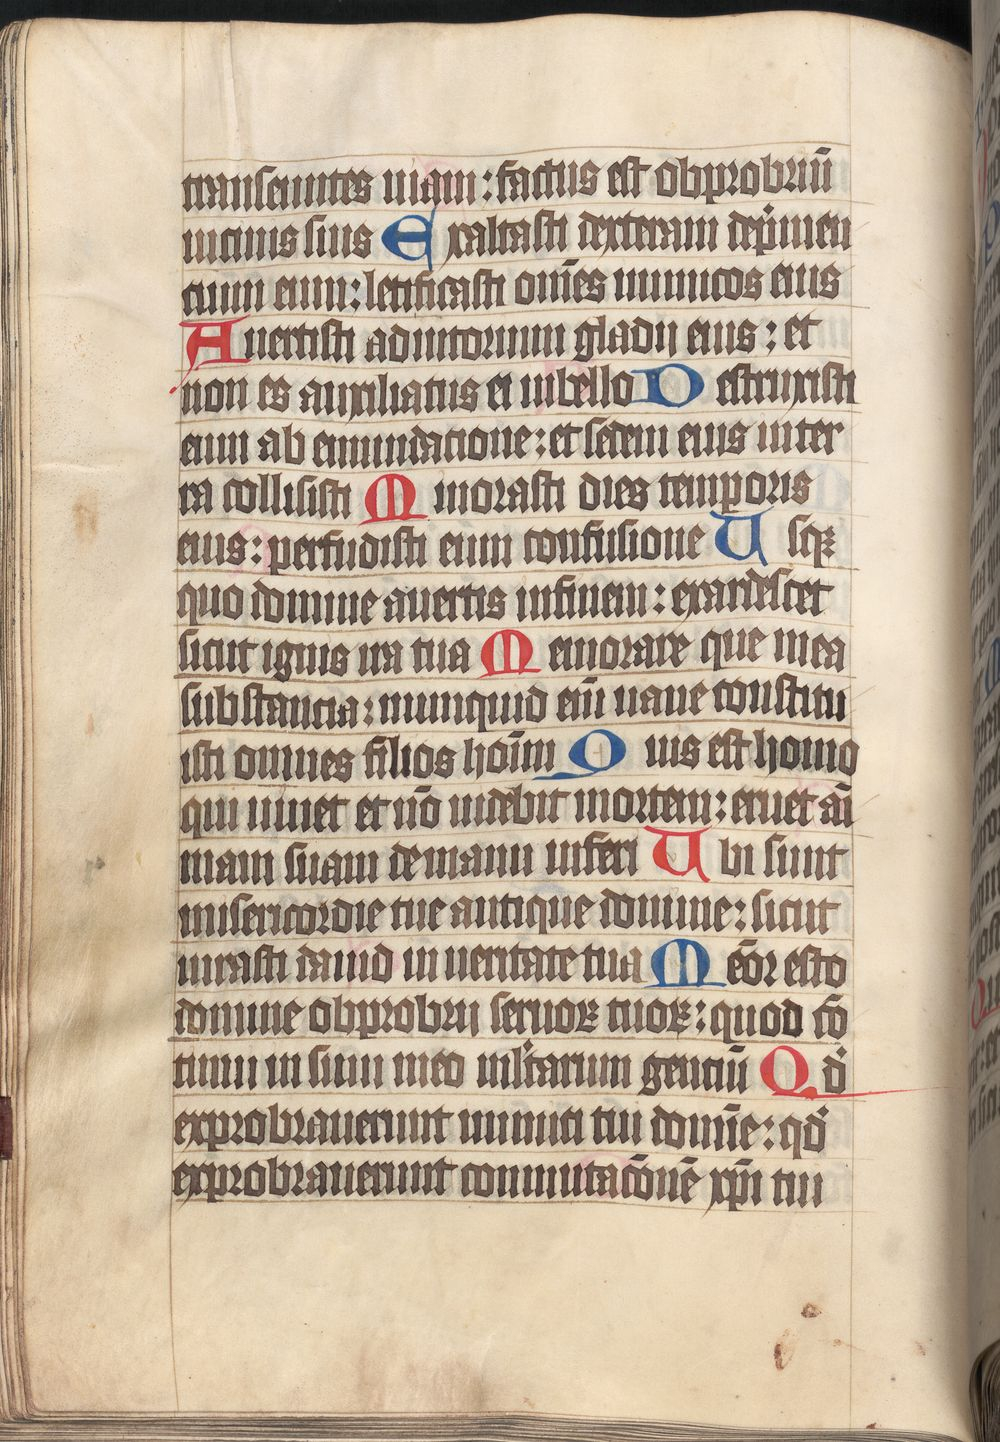 transeuntes uiam : factus est obprobriū
uicinis suis Exaltasti dexteram dep̍men
cium eum : letificasti om̄es inimicos eius
Auertisti adiutorium gladij eius : et
non es auxiliatus ei inbello Destruxisti
eum ab emundatione : et sedem eius in ter
ra collisisti Minorasti dies temporis
eius : perfudisti eum confusione Usqꝫ
quo domine auertis infinem : exardescet
sicut ignis ira tua Memorare que mea
substancia : nunquid em̄ uane constitu
isti omnes filios hoīm Quis est homo
qui uiuet et nō uidebit mortem : eruet aī
mam suam de manu inferi Ubi sunt
misericordie tue antique domine : sicut
iurasti dauid in ueritate tua Meōr esto
domine obprobrij seruoꝝ tuoꝝ : quod cō
tinui in sinu meo ml̍tarum genciū Qd̍
exprobrauerunt inimici tui domīe : qd̍
exprobrauerunt commutacōnē xp̄i tui